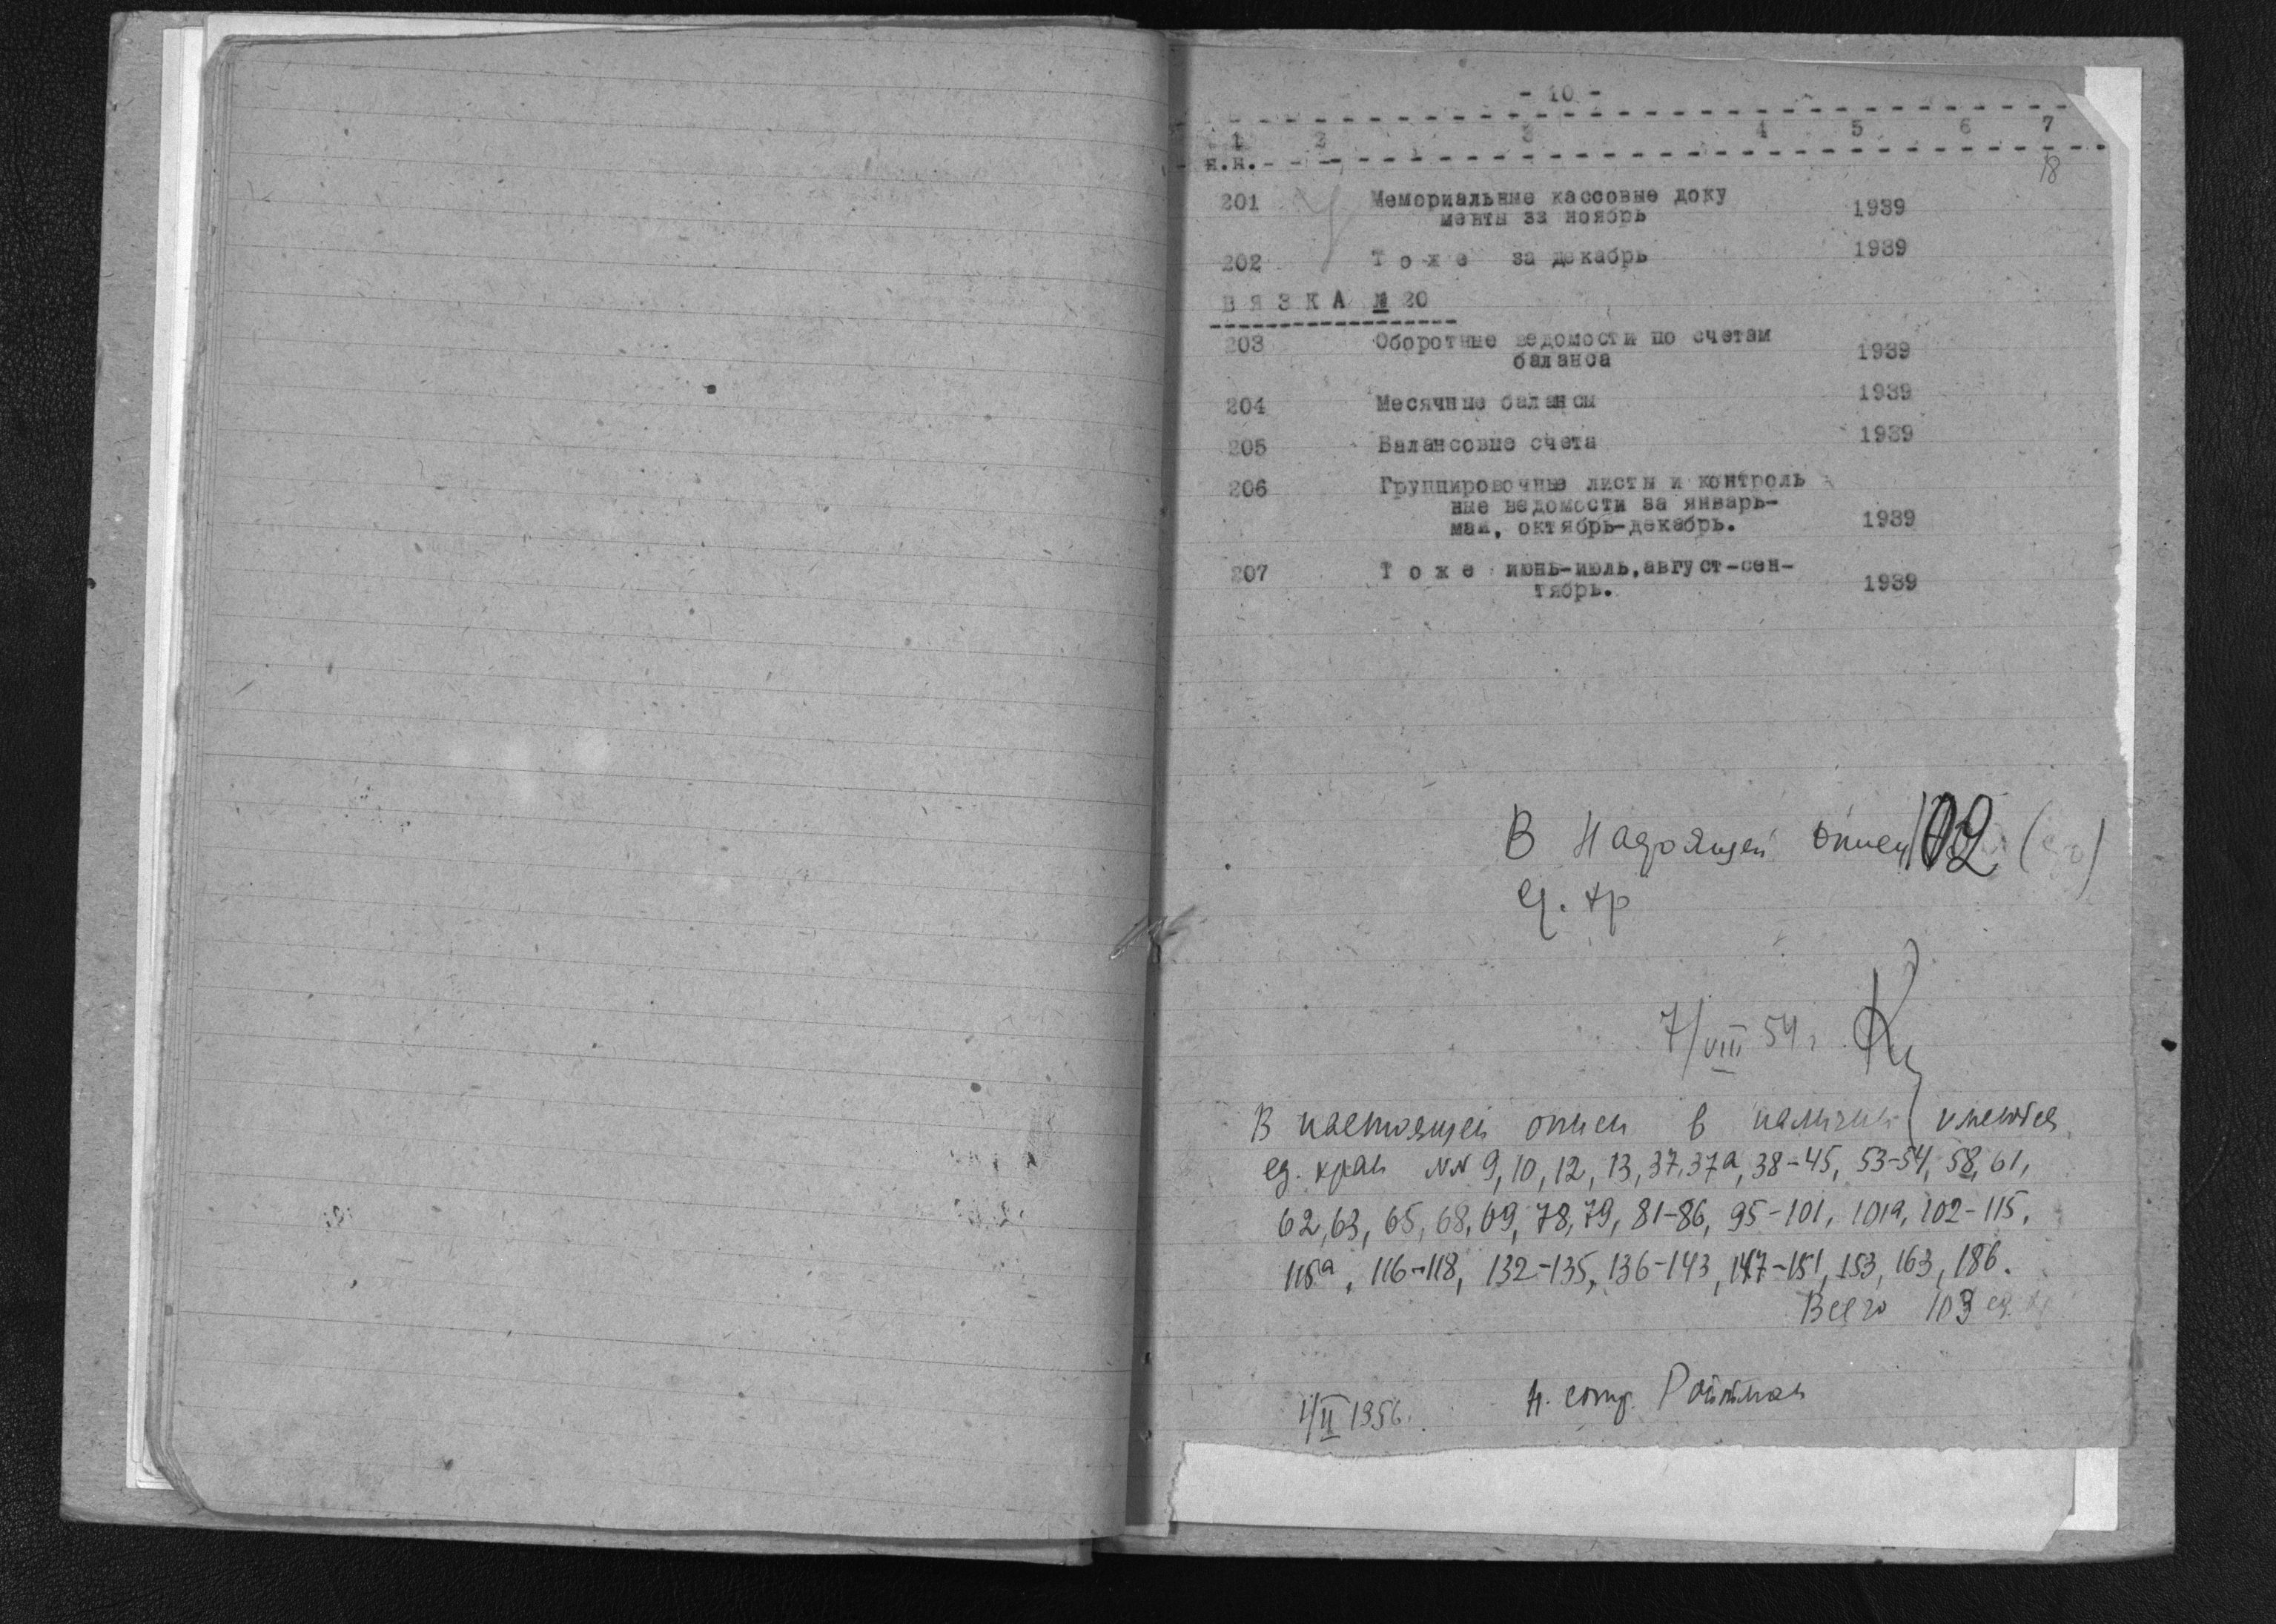 - 10 -
1 2 3 4 5 6 7
н.н.
18
201 Мемориальные кассовые доку 1939
менты за ноябрь
202 Т о ж е за декабрь 1939
В Я З К А № 20
203 Оборотные ведомости по счетам 1939
баланса
204 Месячные балансы 1939
205 Балансовые счета 1939
206 Группировочные листы и контроль
ные ведомости за январь-
май, октябрь-декабрь. 1939
207 Т о ж е июнь-июль,август-сен-
тябрь. 1939
В настоящей описи 102
ед. хр
7/VIII 54 г.
В настоящей описи в наличии имеются
ед. хран NN 9, 10, 12, 13, 37, 37а, 38-45, 53-54, 58, 61,
62, 63, 65, 68, 69, 78, 79, 81-86, 95-101, 101а, 102-115,
115а, 116-118, 132-135, 136-143, 147-151, 153, 163, 186.
Всего 103 ед. хр
1/II 1956. н. сотр. Ройтман